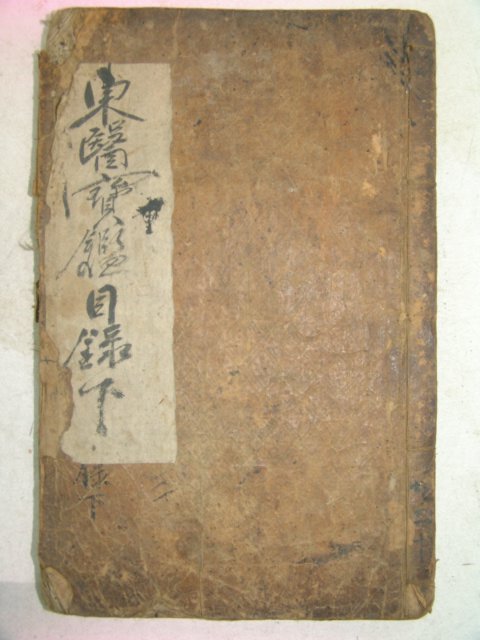 東醫寶鑑目録下